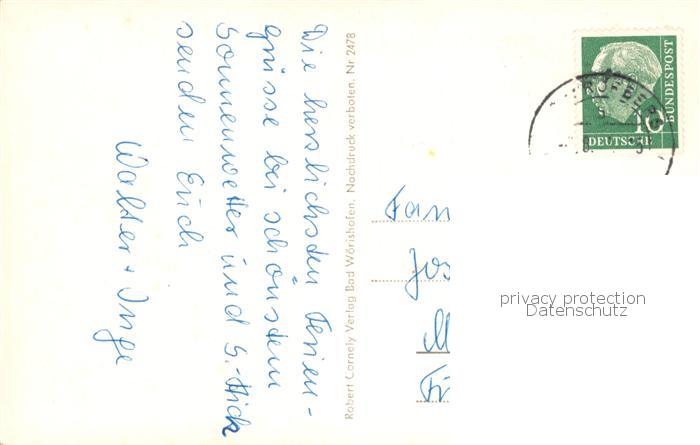 Die herzlichsten Ferien-
grüsse bei schönstem
Sonnenwetter und
senden Euch
Walter + Inge
Robert Cornely Verlag Bad Wörishofen. Nachdruck verboten. Nr 2478
DEUTSCHE
BUNDESPOST
10
Fam
Jos
M
privacy protection
Datenschutz